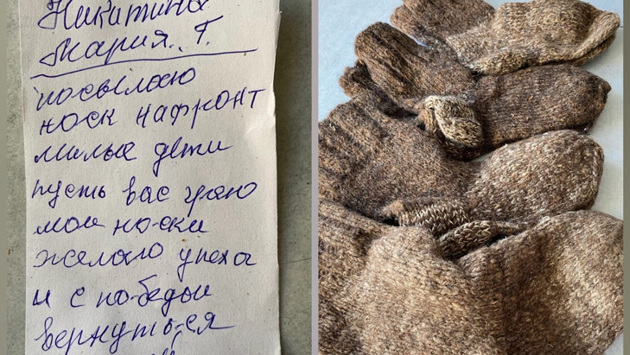 Никитина
Мария. Г.
посылаю
носк на фронт
милые дети
пусть вас грею
мои носки
желаю упеха
и с победы
вернуться